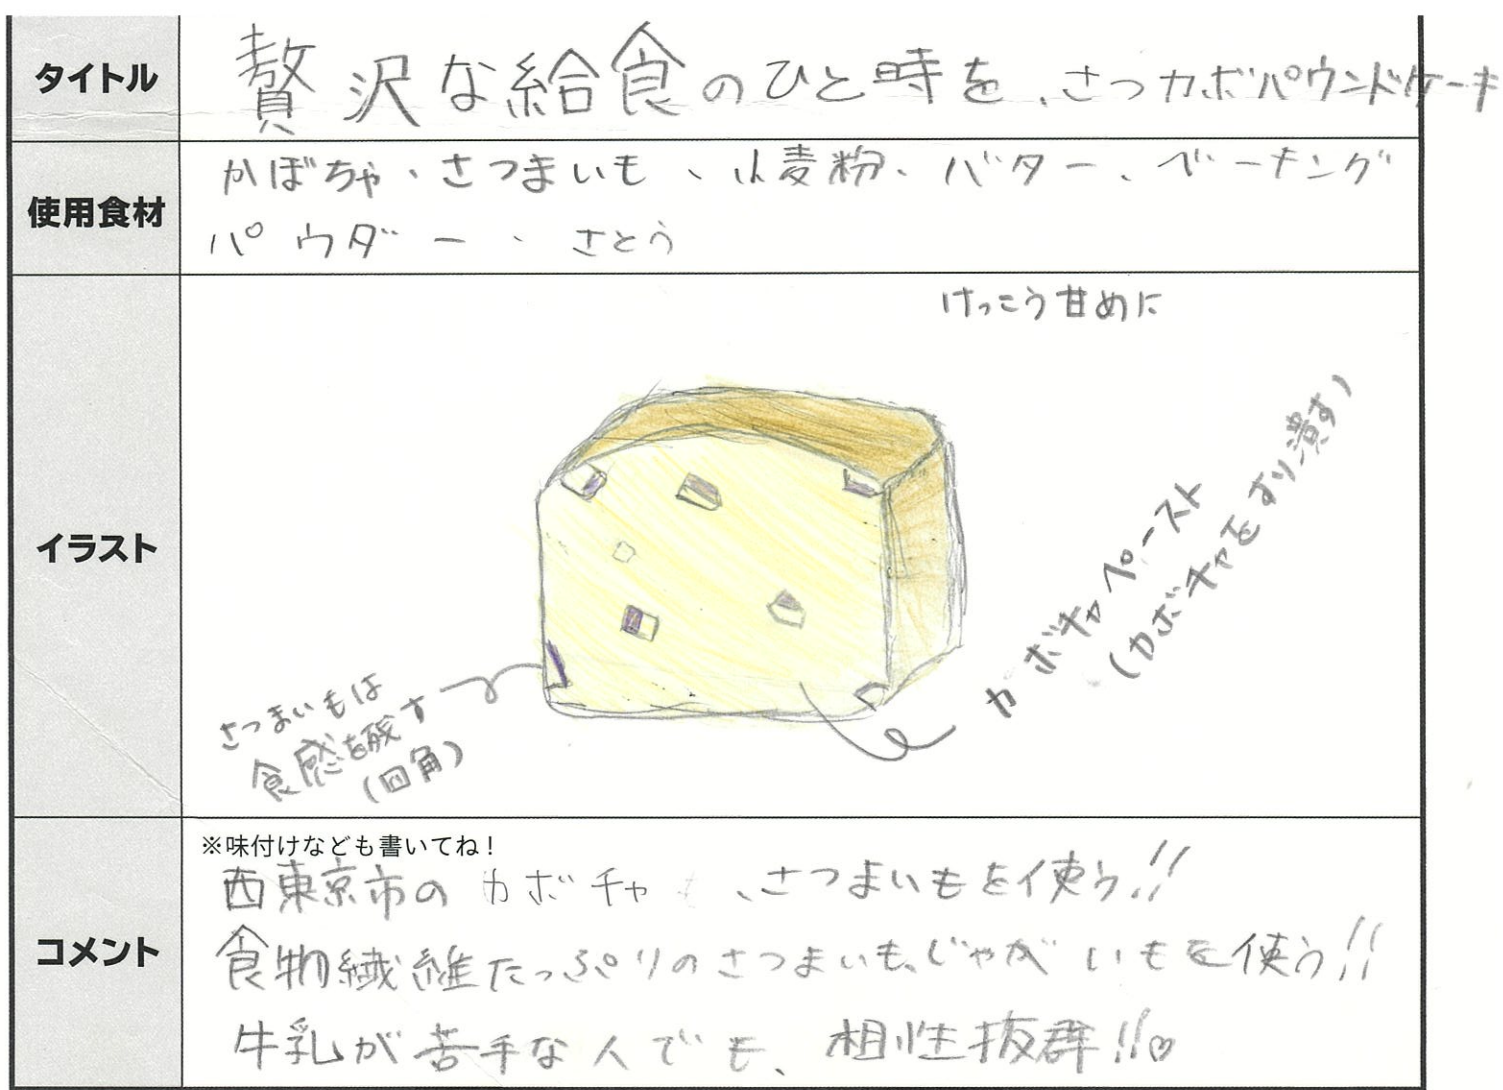 タイトル
贅沢な給食のひと時を、さつカボパウンドケーキ
使用食材
かぼちゃ、さつまいも、小麦粉、バター、ベーキング
パウダー、さとう
イラスト
けっこう甘めに
カボチャペースト
(カボチャをすり潰す)
さつまいもは
食感を残す
(四角)
コメント
※味付けなども書いてね！
西東京市のカボチャ、さつまいもを使う!!
食物繊維たっぷりのさつまいも、じゃがいもを使う!!
牛乳が苦手な人でも、相性抜群!!♡